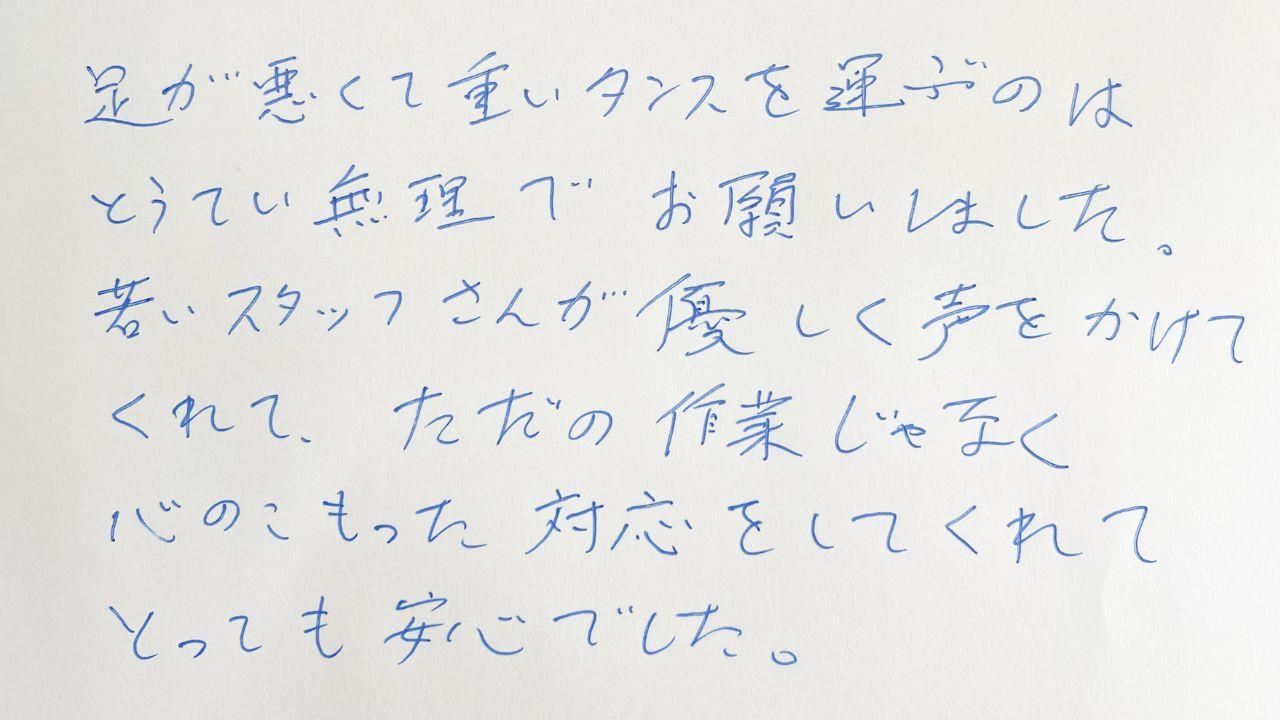 足が悪くて重いタンスを運ぶのは
とうてい無理でお願いしました。
若いスタッフさんが優しく声をかけて
くれて、ただの作業じゃなく
心のこもった対応をしてくれて
とっても安心でした。